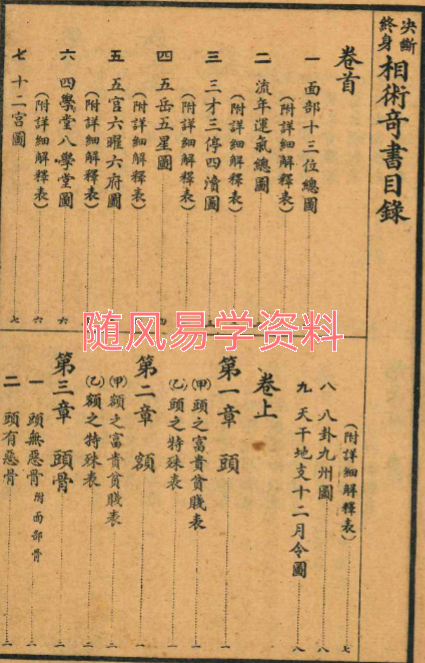 決斷終身相術奇書目錄
卷首
一 面部十三位總圖
(附詳細解釋表)
二 流年運氣總圖
(附詳細解釋表)
三 三才三停四瀆圖
(附詳細解釋表)
四 五岳五星圖
(附詳細解釋表)
五 五官六曜六府圖
(附詳細解釋表)
六 四學堂八學堂圖 六
(附詳細解釋表) 六
七 十二宮圖 七
(附詳細解釋表) 七
八 八卦九州圖 八
九 天干地支十二月令圖 八
卷上
第一章 頭 一
(甲)頭之富貴貧賤表 一
(乙)頭之特殊表 一
第二章 額 一
(甲)額之富貴貧賤表 二
(乙)額之特殊表 二
第三章 頭骨 二
一 頭無惡骨 附面部骨 二
二 頭有惡骨 二
随风易学资料